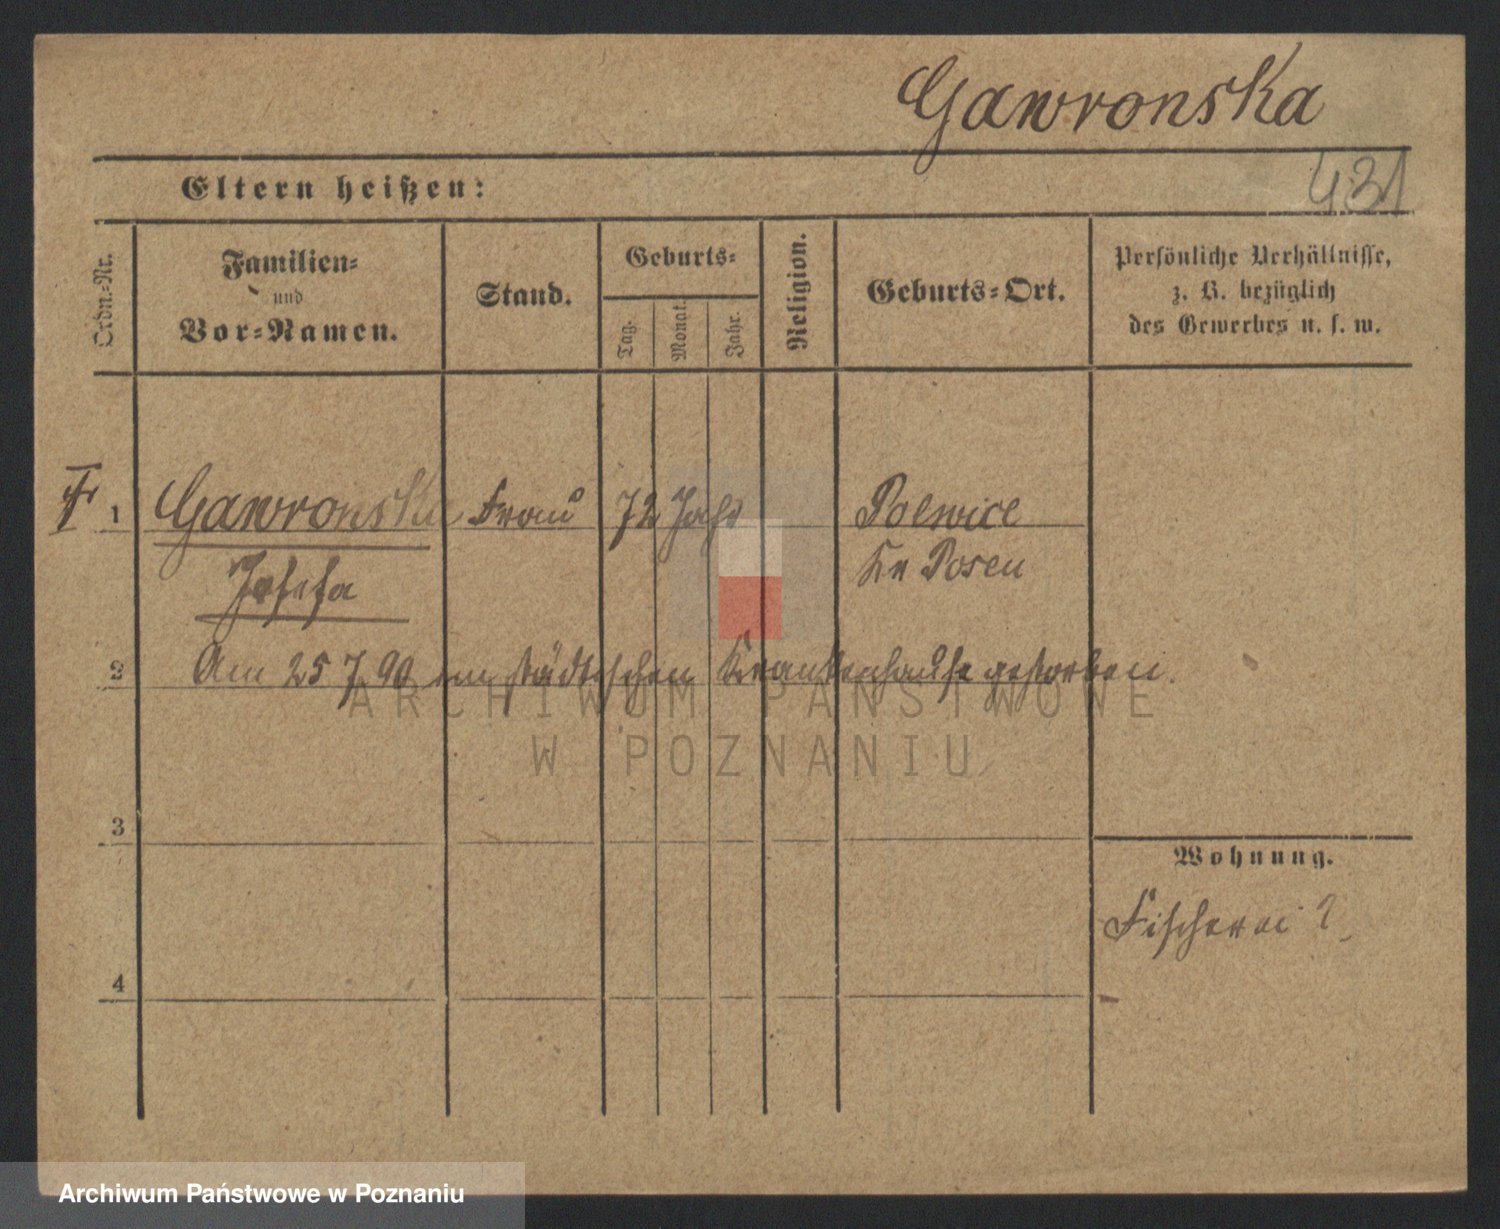 Gawronska
431
Eltern heißen:
Ordn.-Nr.
Familien-
und
Vor-Namen.
Stand.
Geburts-
Tag.
Monat.
Jahr.
Religion.
Geburts-Ort.
Persönliche Verhältnisse,
z. B. bezüglich
des Gewerbes u. s. w.
1 Gawronska Frau 72 Jahr
Josefa
Kr Posen
2 Am 25 7 90 im städtischen Krankenhause gestorben.
3
4
Wohnung.
Fischerei
ARCHIWUM PAŃSTWOWE
W POZNANIU
Archiwum Państwowe w Poznaniu